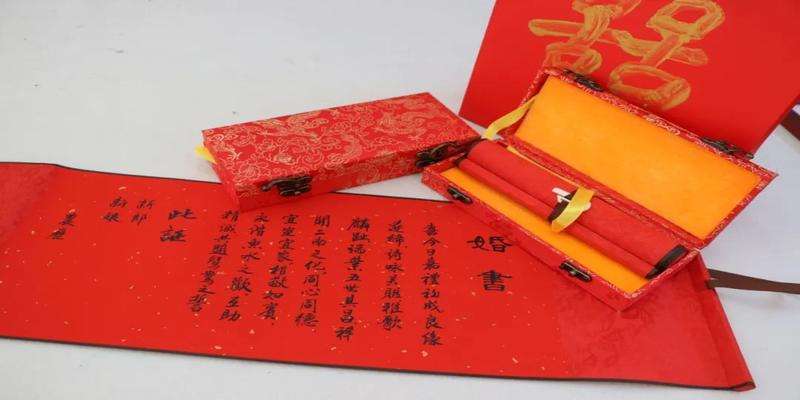 囍
婚書
喜今日嘉禮初成良緣
遂締詩詠關雎雅歌
麟趾瑞葉五世其昌祥
開二南之化同心同德
宜室宜家相敬如賓
永諧魚水之歡互助
精誠共盟鴛鴦之誓
此證
新郎
新娘